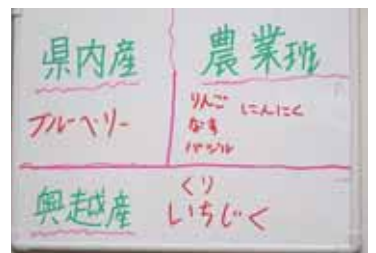 県内産
ブルーベリー
農業班
りんご にんにく
なす
バジル
奥越産
くり
いちじく